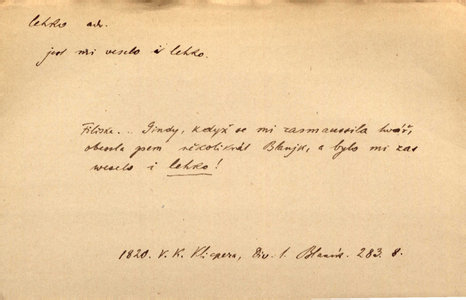 lehko adv.
jest mi veselo i lehko.
Filiska.. Jindy, když se mi zasmušila tvář,
obešla jsem několikrát Blaník, a bylo mi zas
veselo i lehko!
1820. V. K. Klicpera, Div. 1. Blaník. 283. 8.